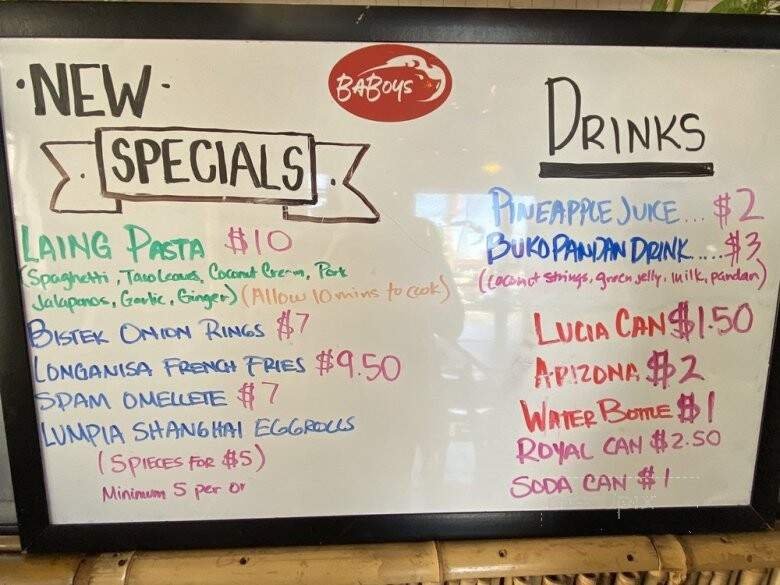 BABOYS
·NEW·
SPECIALS
LAING PASTA $10
(Spaghetti, Taro Leaves, Coconut Cream, Pork
Jalapanos, Garlic, Ginger) (Allow 10 mins to cook)
BISTEK ONION RINGS $7
LONGANISA FRENCH FRIES $9.50
SPAM OMELLETE $7
LUMPIA SHANGHAI EGGROLLS
(5 PIECES FOR $5)
Minimum 5 per or
DRINKS
PINEAPPLE JUICE... $2
BUKO PANDAN DRINK..... $3
(coconut strings, green jelly, milk, pandan)
LUCIA CAN $1.50
ARIZONA $2
WATER BOTTLE $1
ROYAL CAN $2.50
SODA CAN $1